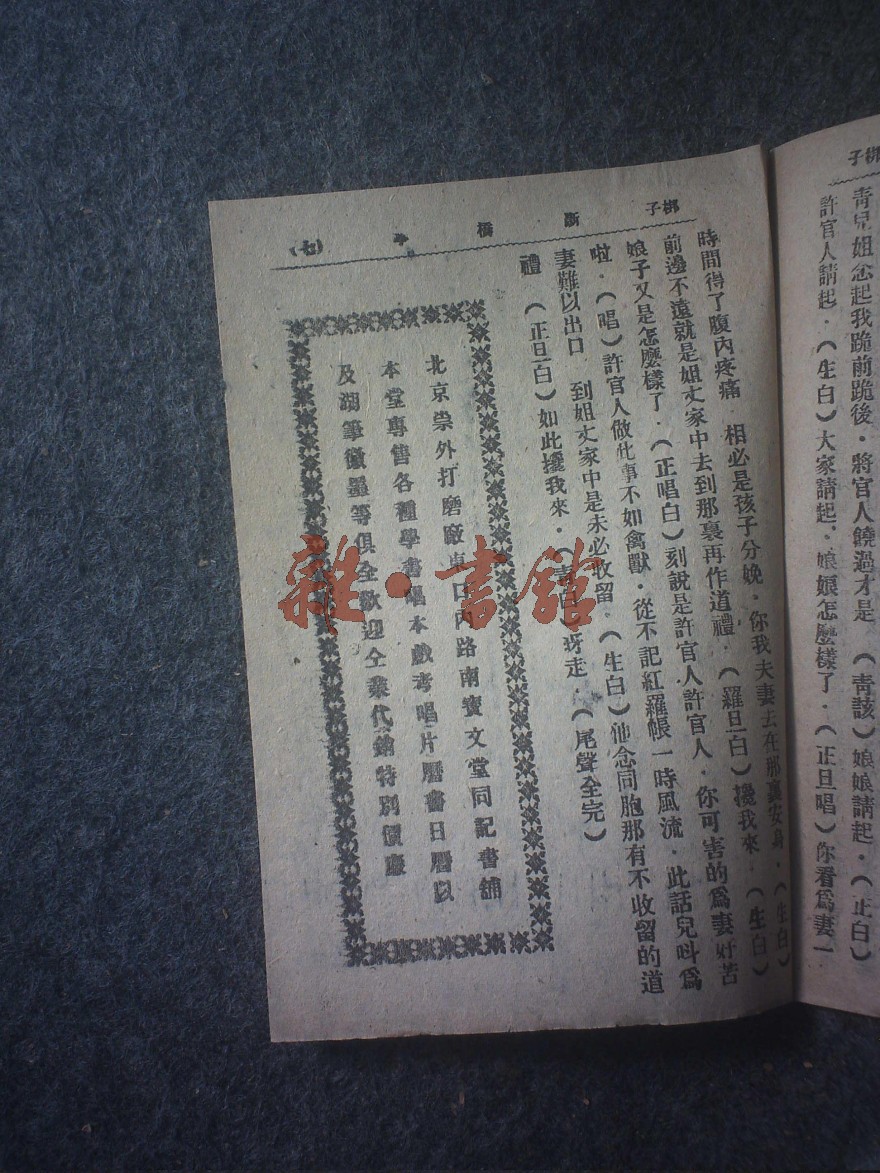 梆子
青兒姐念起我跪前跪後・將官人饒過才是 (靑該)娘娘請起・(正白)
許官人請起・(生白)大家請起・娘娘怎麼樣了・(正旦唱)你看爲妻一
梆子 斷橋 (七)
時間得了腹內疼痛 相必是孩子分娩・你我夫妻去在那裏安身・(生白)
前邊不遠就是姐丈家中去到那裏再作道禮・(羅旦白)攙我來・(生白)
娘子又是怎麼樣了・(正唱白)刻說是許官人許官人・你可害的爲妻好苦
啦・(唱)許官人做此事不如禽獸・從不記紅羅帳一時風流・此話兒呌爲
妻難以出口 到姐丈家中是未必收留・(生白)他念同胞那有不收留的道
禮 (正旦白)如此攙我來・(靑白)呀走・(尾聲全完)
北京崇外打磨廠東口內路南寶文堂同記書舖
本堂專售各種學書唱本戲考唱片曆書日曆以
及湖筆徽墨等俱全歡迎仝業代銷特別價廉
雜・書館